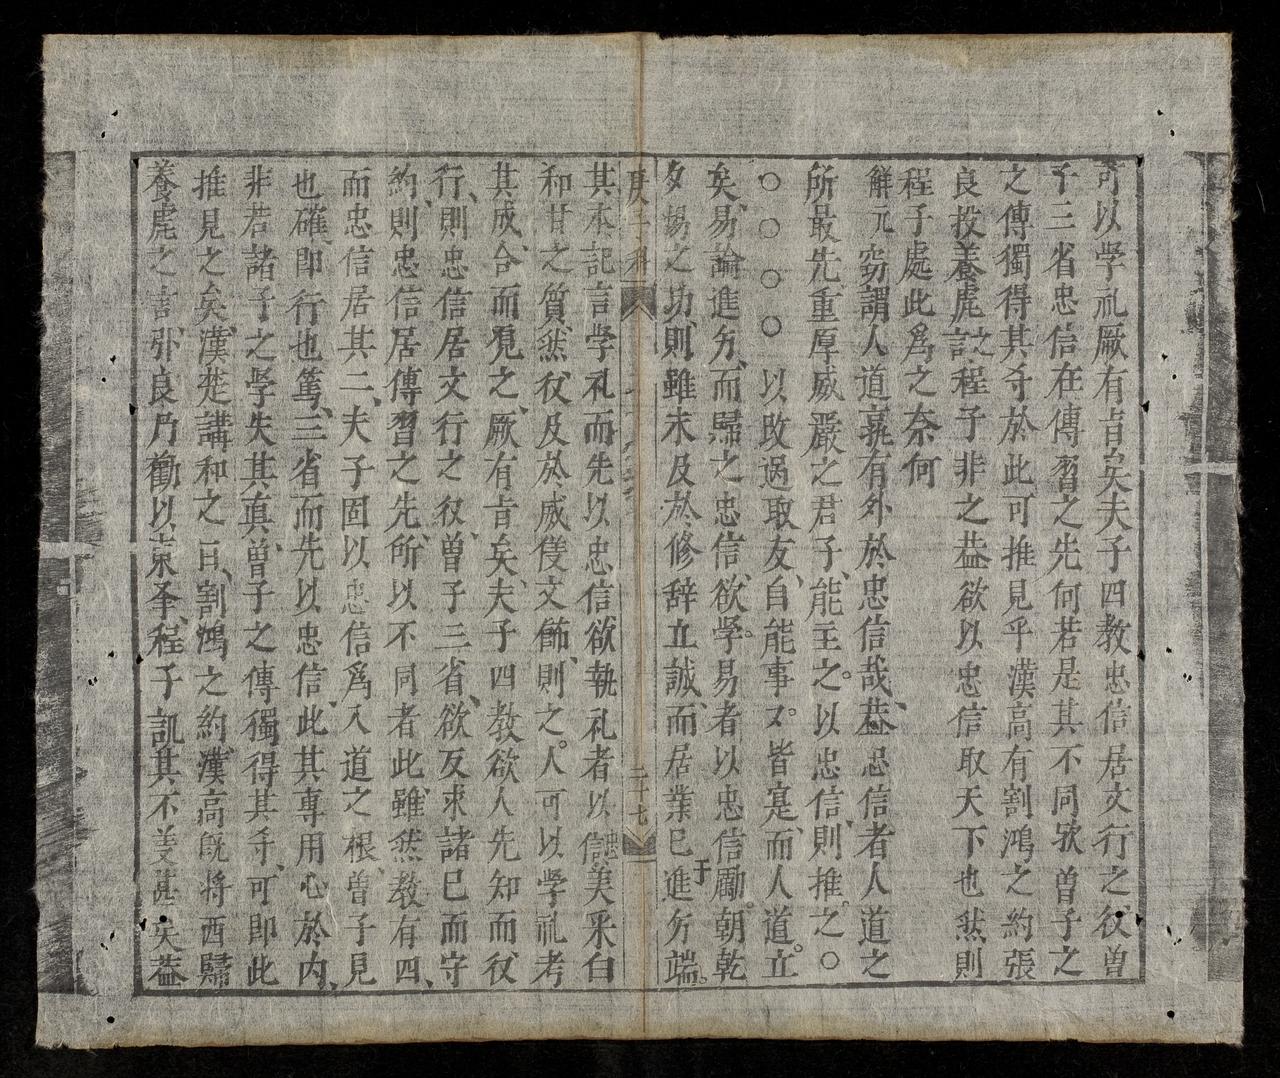 可以学礼厥有旨矣夫子四教忠信居文行之後曽
子三省忠信在傳習之先何若是其不同欤曽子之
之傳獨得其宗於此可推見乎漢高有割鴻之約張
良投養虎之言程子非之葢欲以忠信取天下也然則
程子處此爲之奈何
解元窃謂人道孰有外於忠信哉葢忠信者人道之
所最先重厚威嚴之君子能主之以忠信則推之〇
〇〇〇〇以改過取友自能事又皆寔而人道立
矣易論進夛而歸之忠信欲学易者以忠信勵朝乾
夕惕之功則雖未及於修辞立誠而居業已于進夛端
庚子科
二十七
其本記言学礼而先以忠信欲執礼者以信美采白
和甘之質然後及於威儀文餙則之人可以学礼考
其成合而覌之厥有旨矣夫子四教欲人先知而後
行則忠信居文行之後曽子三省欲反求諸已而守
約則忠信居傳習之先所以不同者此雖然教有四
而忠信居其二夫子固以忠信爲入道之根曽子見
也確即行也篤三省而先以忠信此其専用心於内
非若諸子之学失其真曽子之傳獨得其宗可即此
推見之矣漢楚講和之日割鴻之約漢高既将西歸
養虎之言張良乃勸以東争程子訊其不義甚矣葢